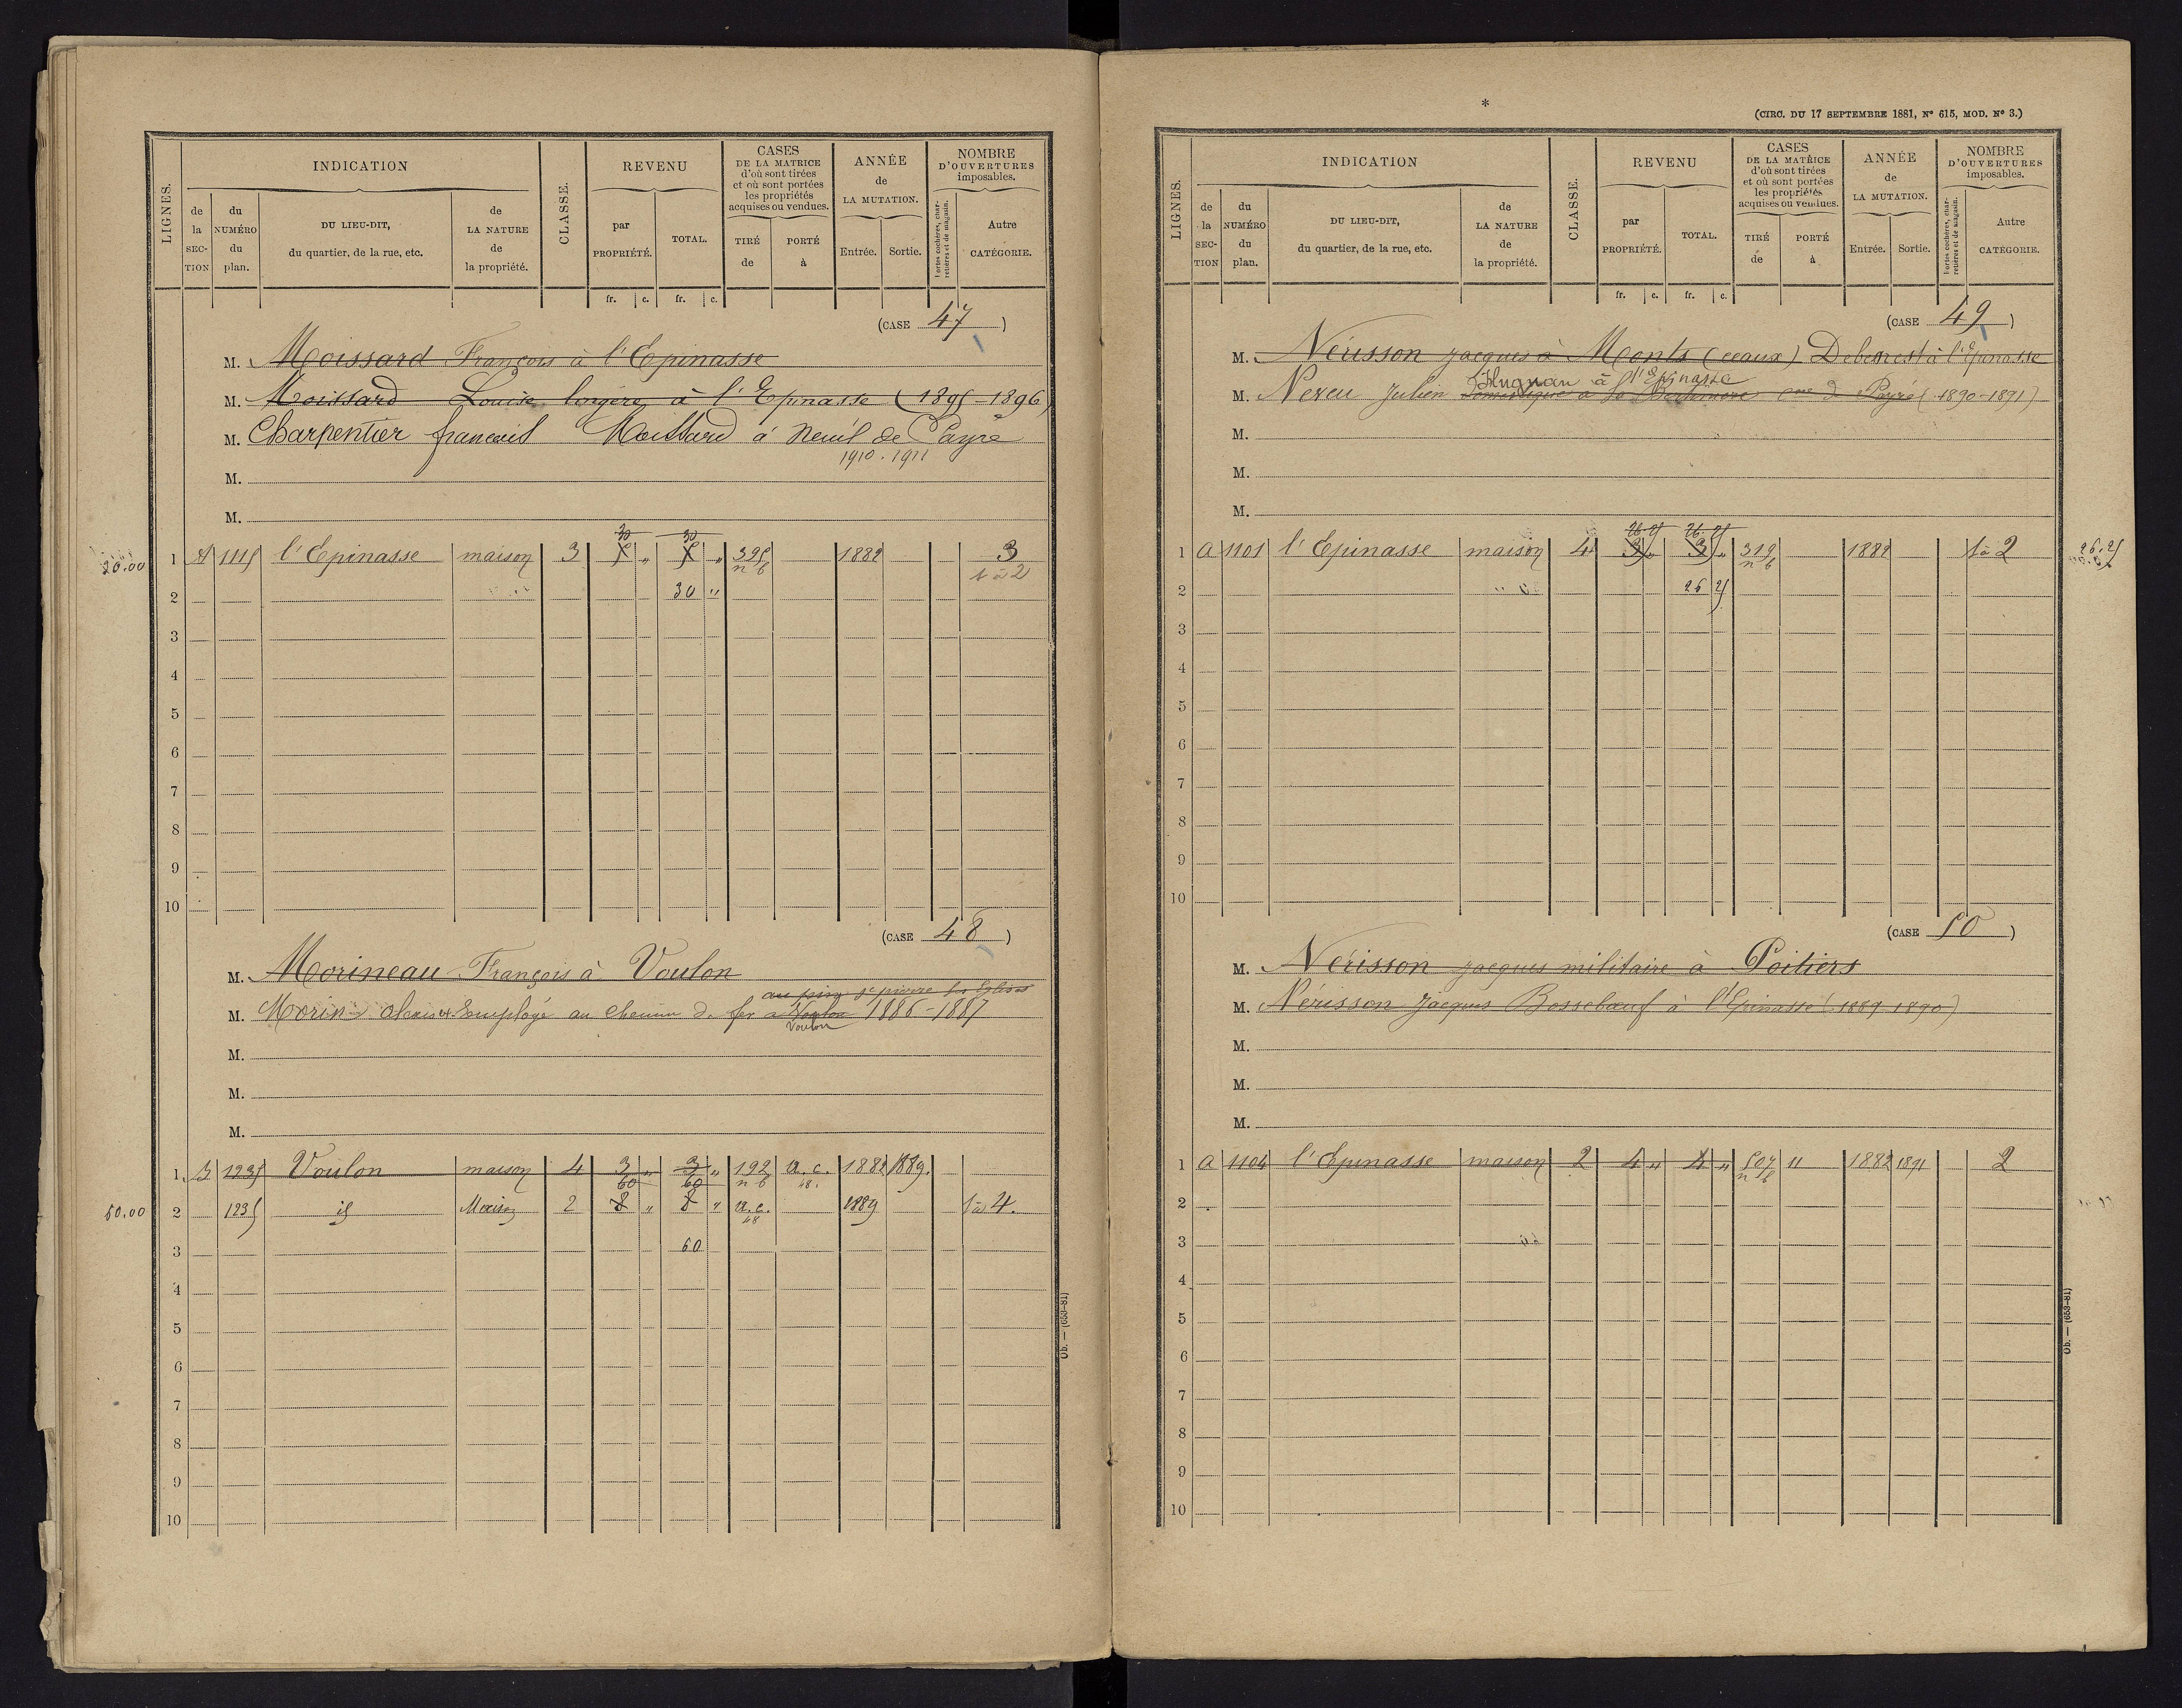 LIGNES.
INDICATION
de la SECTION
du NUMÉRO du plan.
DU LIEU-DIT, du quartier, de la rue, etc.
de LA NATURE de la propriété.
CLASSE.
REVENU
par PROPRIÉTÉ.
TOTAL.
fr. c. fr. c.
CASES DE LA MATRICE d'où sont tirées et où sont portées les propriétés acquises ou vendues.
TIRÉ de
PORTÉ à
ANNÉE de LA MUTATION.
Entrée. Sortie.
NOMBRE D'OUVERTURES imposables.
Portes cochères, charretières et de magasin.
Autre CATÉGORIE.
(CASE 47)
M. Moissard François à l'Epinasse
M. Moissard Louise lingère à l'Epinasse (1895-1896)
M. Charpentier francois Moissard à Neuil de Payré
1910.1911
M.
M.
30 30
20.00 1 A 1115 l'Epinasse maison 3 5 " 5 " 395 1882 3
n b 1 à 2
2 30 "
3
4
5
6
7
8
9
10
(CASE 48)
M. Morineau François à Voulon
au pin St pierre les Eglises
M. Morin Employé au chemin de fer à Voulon 1886-1887
Voulon
M.
M.
M.
1 B 1235 Voulon maison 4 3 " 3 " 192 a.c. 1882 1889.
60 60 n b 48.
60.00 2 1235 id Maison 2 8 " 8 " a.c. 1889 1 à 4.
48
3 60
4
5
6
7
8
9
10
Ob. — (653-81)
*
(CIRC. DU 17 SEPTEMBRE 1881, Nº 615, MOD. Nº 3.)
LIGNES.
INDICATION
de la SECTION
du NUMÉRO du plan.
DU LIEU-DIT, du quartier, de la rue, etc.
de LA NATURE de la propriété.
CLASSE.
REVENU
par PROPRIÉTÉ.
TOTAL.
fr. c. fr. c.
CASES DE LA MATRICE d'où sont tirées et où sont portées les propriétés acquises ou vendues.
TIRÉ de
PORTÉ à
ANNÉE de LA MUTATION.
Entrée. Sortie.
NOMBRE D'OUVERTURES imposables.
Portes cochères, charretières et de magasin.
Autre CATÉGORIE.
(CASE 49)
M. Nérisson Jacques à Monts (ceaux) Debenest à l'Epinasse
à l'Epinasse
M. Nereu Julien domestique à la cne de Payré (1890-1891)
M.
M.
M.
26.25 26.25
1 A 1101 l'Epinasse maison 4 3 " 3 " 319 1882 1 à 2 26.25
n b
2 26 25
3
4
5
6
7
8
9
10
(CASE 50)
M. Nérisson Jacques militaire à Poitiers
M. Nérisson Jacques Bossebœuf à l'Epinasse (1889-1890)
M.
M.
M.
1 A 1104 l'Epinasse maison 2 4 " 4 " 507 11 1882 1891 2
n b
2
3
4
5
6
7
8
9
10
Ob. — (653-81)